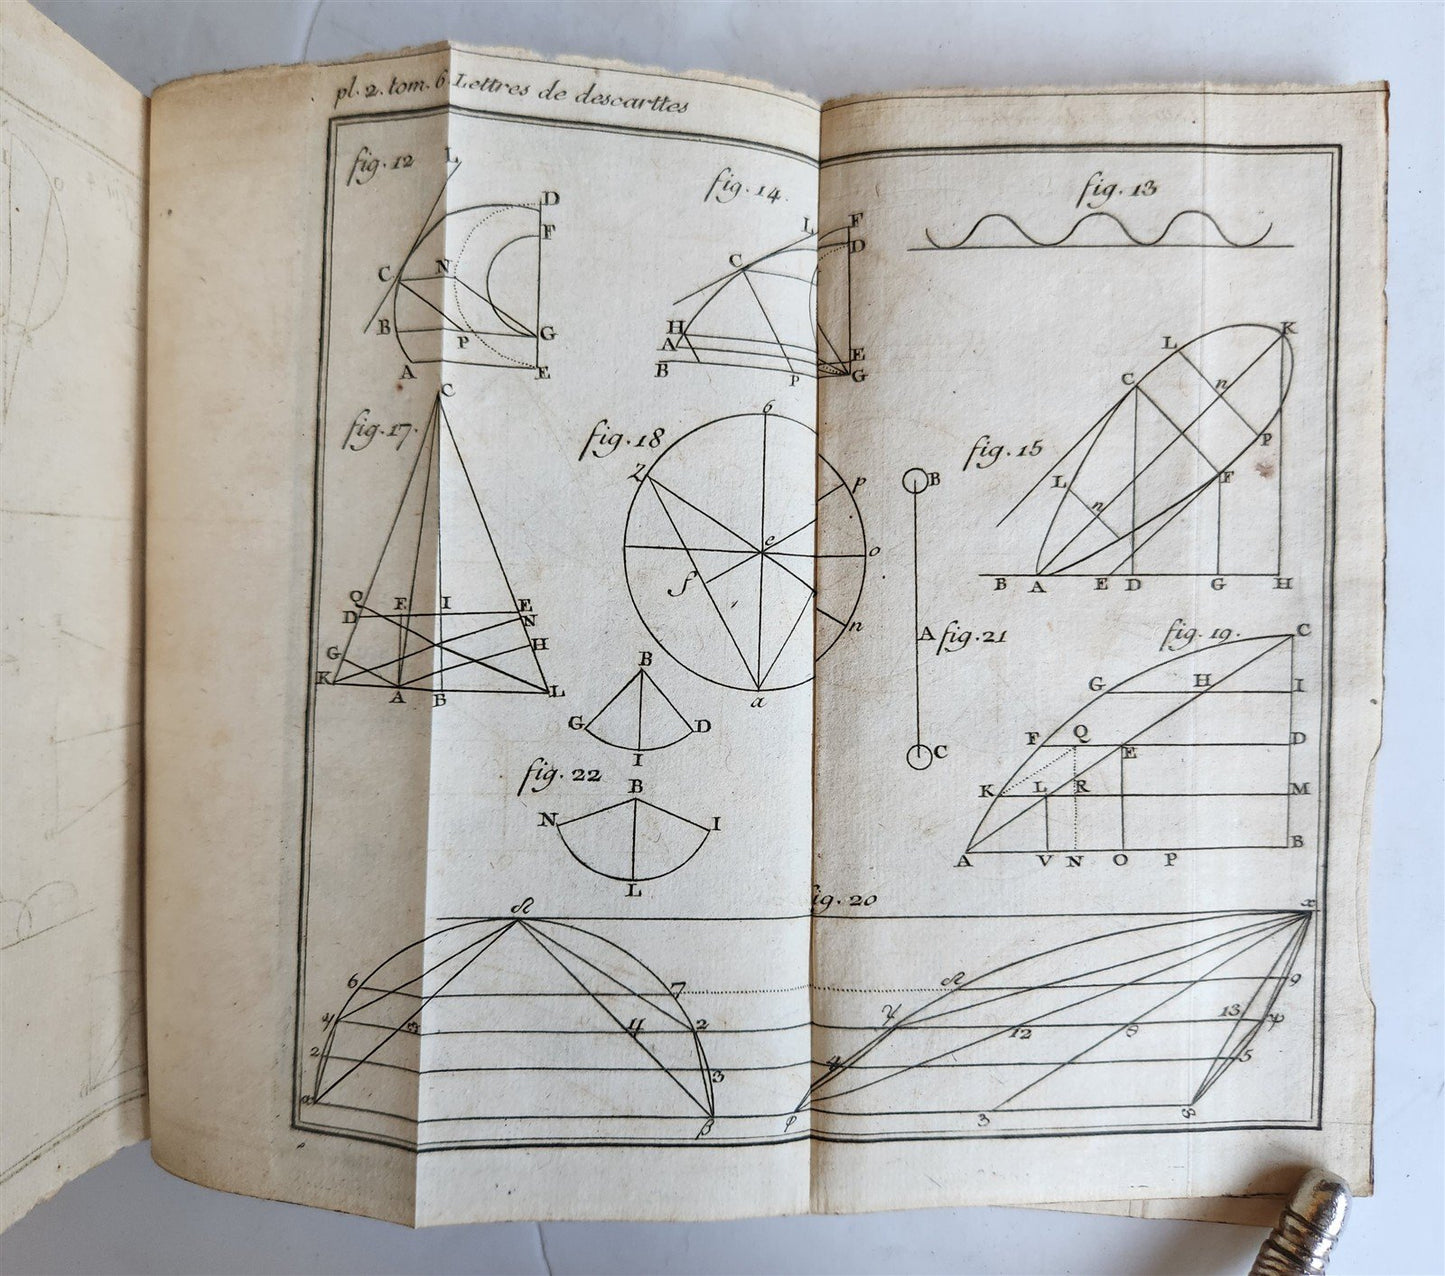 pl. 2. tom. 6 Lettres de descarttes
fig. 12
L
D
F
C
N
B
P
G
A
E
fig. 14.
L
F
D
C
H
A
B
P
E
G
fig. 13
fig. 17.
C
Q
D
F
I
E
N
G
H
K
A
B
L
fig. 18
6
Z
p
e
o
f
n
a
B
A
C
fig. 21
fig. 15
K
L
n
C
P
L
n
F
B
A
E
D
G
H
fig. 19.
C
G
H
I
F
Q
E
D
K
L
R
M
A
V
N
O
P
B
B
G
D
I
fig. 22
B
N
I
L
ig. 20
6
7
2
2
3
α
β
x
9
12
8
13
4
5
φ
3